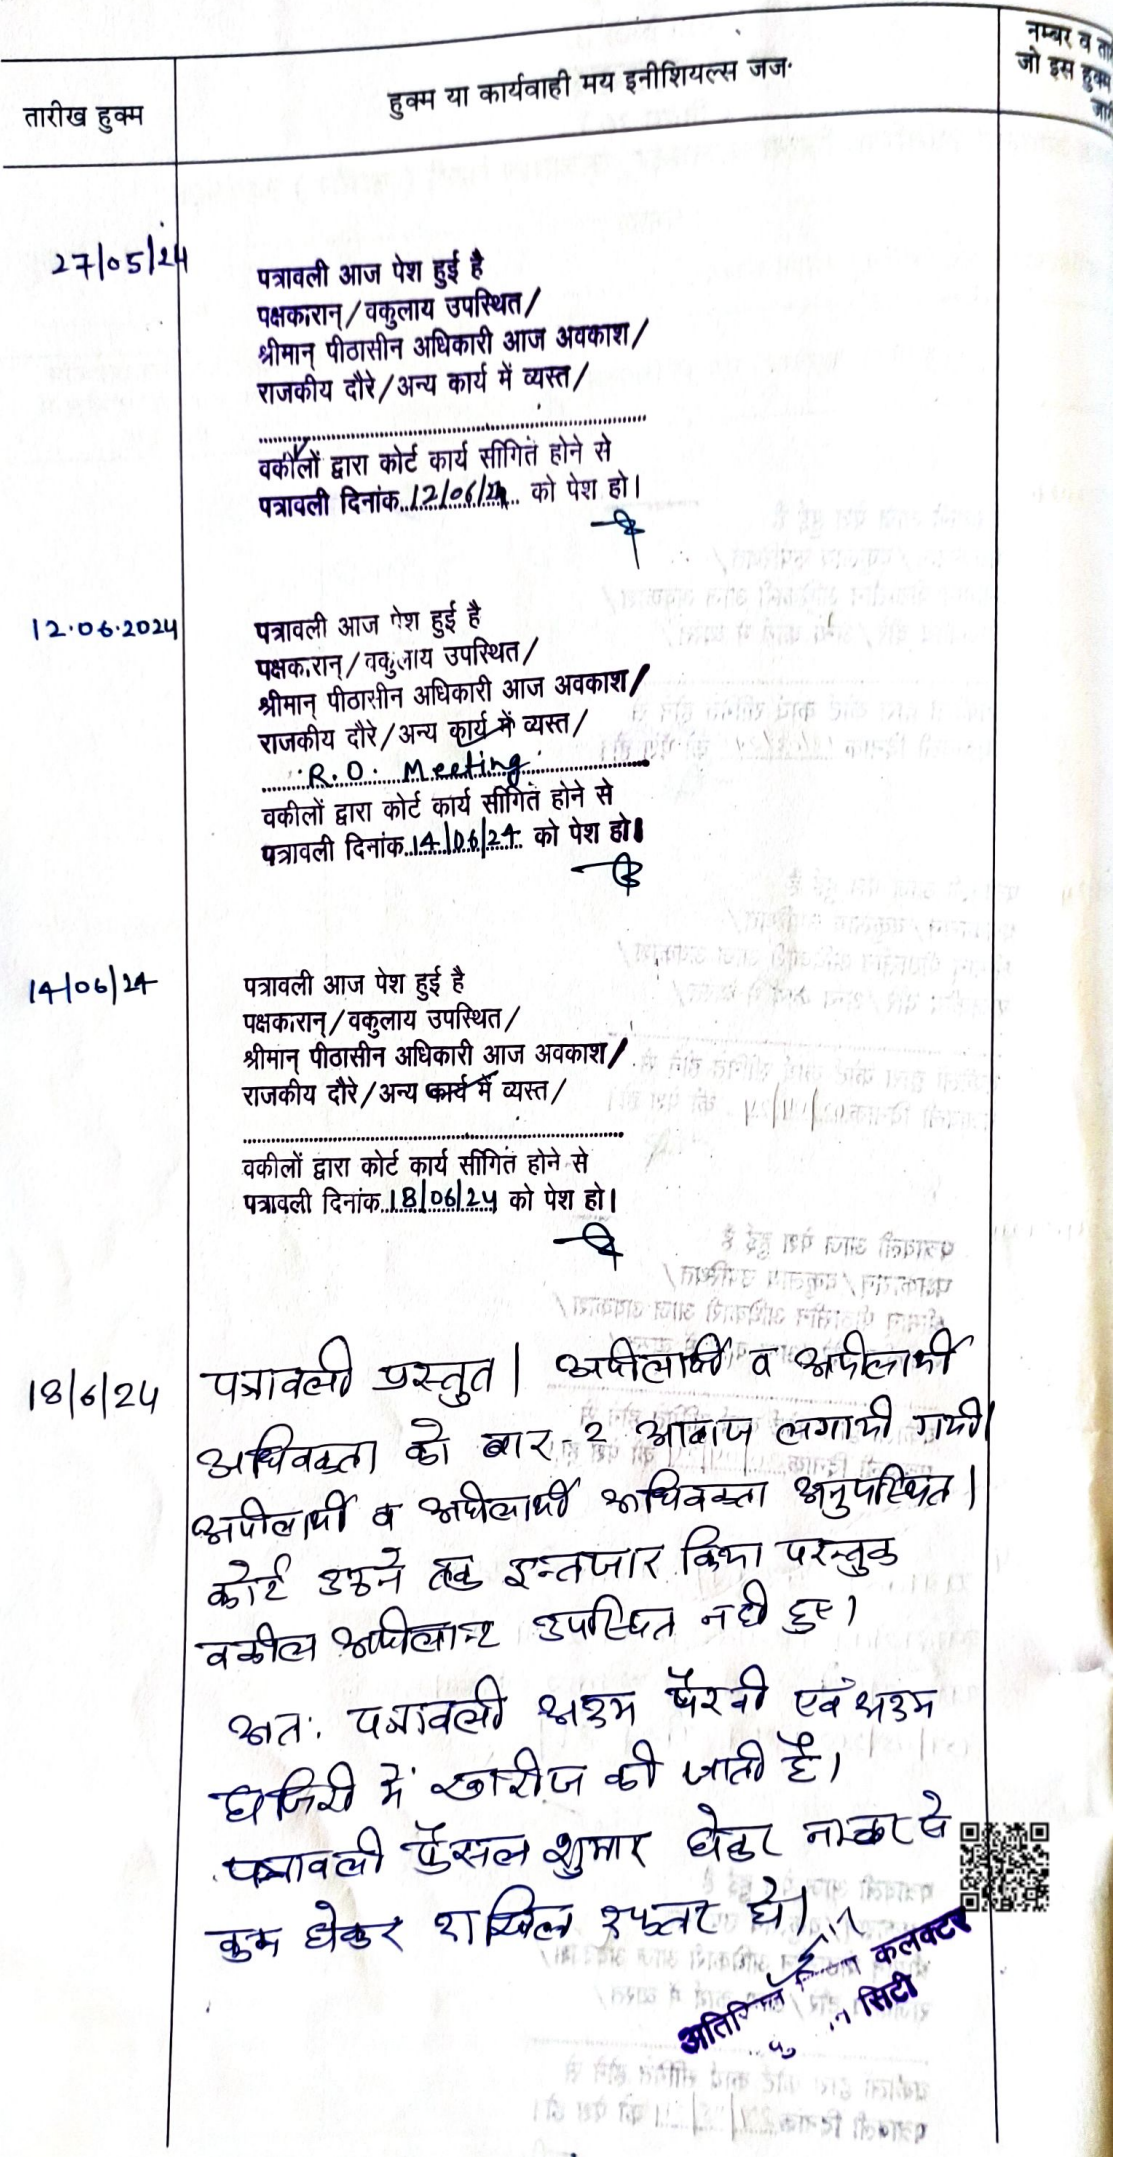 नम्बर व ता
जो इस हुक्म
जा
तारीख हुक्म
हुक्म या कार्यवाही मय इनीशियल्स जज
27/05/24
पत्रावली आज पेश हुई है
पक्षकारान्/वकुलाय उपस्थित/
श्रीमान् पीठासीन अधिकारी आज अवकाश/
राजकीय दौरे/अन्य कार्य में व्यस्त/
वकीलों द्वारा कोर्ट कार्य सीगित होने से
पत्रावली दिनांक 12/06/24 को पेश हो।
12.06.2024
पत्रावली आज पेश हुई है
पक्षकारान्/वकुलाय उपस्थित/
श्रीमान् पीठासीन अधिकारी आज अवकाश/
राजकीय दौरे/अन्य कार्य में व्यस्त/
R.O. Meeting
वकीलों द्वारा कोर्ट कार्य सीगित होने से
पत्रावली दिनांक 14/06/24 को पेश हो।
14/06/24
पत्रावली आज पेश हुई है
पक्षकारान्/वकुलाय उपस्थित/
श्रीमान् पीठासीन अधिकारी आज अवकाश/
राजकीय दौरे/अन्य कार्य में व्यस्त/
वकीलों द्वारा कोर्ट कार्य सीगित होने से
पत्रावली दिनांक 18/06/24 को पेश हो।
18/6/24
पत्रावली प्रस्तुत। अपीलार्थी व अपीलार्थी
अधिवक्ता को बार-2 आवाज लगायी गयी।
अपीलार्थी व अपीलार्थी अधिवक्ता अनुपस्थित।
कोर्ट उठने तक इन्तजार किया परन्तुक
वकील अपीलान्ट उपस्थित नही हुए।
अतः पत्रावली अदम पैरवी एवं अदम
हाजिरी में खारीज की जाती है।
पत्रावली फैसल शुमार होकर नम्बर से
कम होकर दाखिल दफ्तर हो।
अतिरिक्त कलक्टर
सिटी